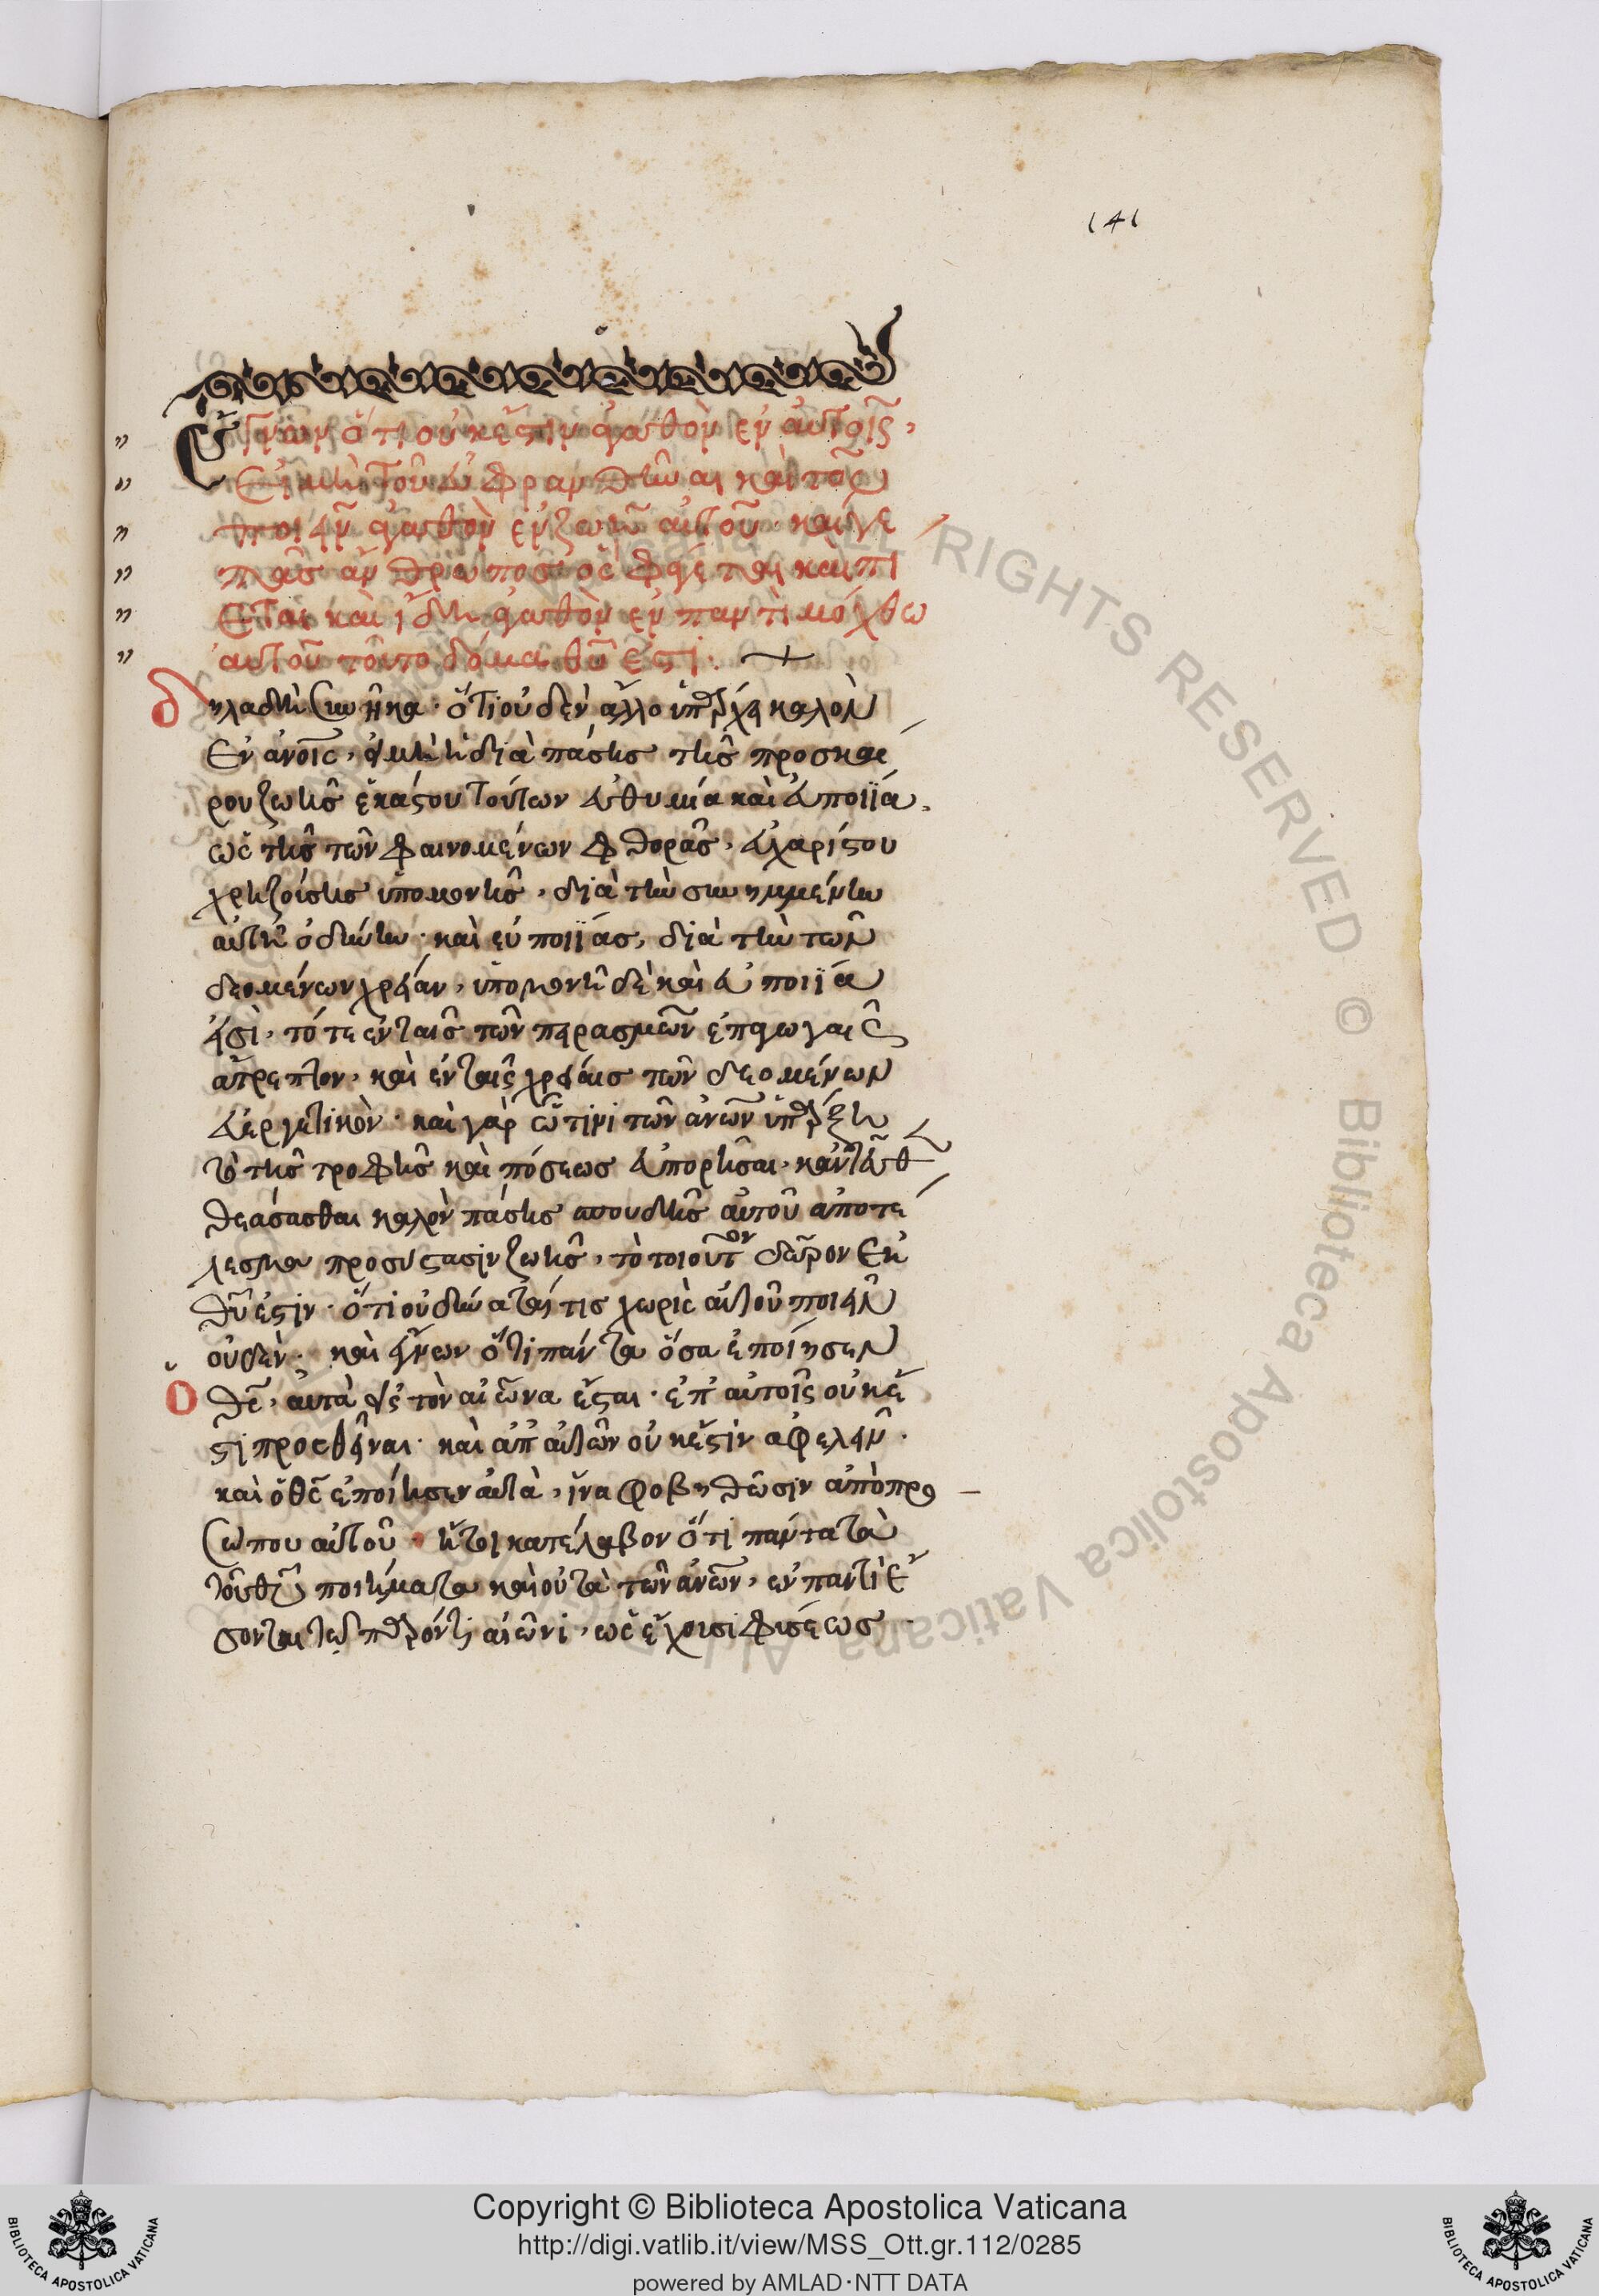 141
Ἔγνων ὅτι οὐκ ἔστιν ἀγαθὸν ἐν αὐτοῖς,
εἰ μὴ τοῦ εὐφρανθῆναι καὶ τοῦ
ποιεῖν ἀγαθὸν ἐν ζωῇ αὐτοῦ· καί γε
πᾶς ἄνθρωπος ὃς φάγεται καὶ πί
εται καὶ ἴδῃ ἀγαθὸν ἐν παντὶ μόχθω
αὐτοῦ τοῦτο δόμα θυ ἐστι·
δηλαδὴ συνῆκα· ὅτι οὐδὲν ἄλλο ὑπάρχει καλὸν
ἐν ἀνοις, εἰ μὴ ἡ διὰ πάσης τῆς προσκαί
ρου ζωῆς ἑκάστου τούτων εὐθυμία καὶ εὐποιΐα,
ὡς τῆς τῶν φαινομένων φθορᾶς, εὐχαρίστου
χρηζούσης ὑπομονῆς, διὰ τὴν συνημμένην
αὐτῇ ὀδύνην· καὶ εὐποιΐας, διὰ τὴν τῶν
δεομένων χρείαν, ὑπομονὴ δὲ καὶ εὐποιΐα
εἰσὶ, τό τε ἐν ταῖς τῶν πειρασμῶν ἐπαγωγαῖς
ἄτρεπτον, καὶ ἐν ταῖς χρείαις τῶν δεομένων
εὐεργετικὸν· καὶ γὰρ ᾧ τινι τῶν ἀνων ὑπάρξει
τὸ τῆς τροφῆς καὶ πόσεως εὐπορῆσαι, κἀντεῦθ
θεάσασθαι καλὸν πάσης σπουδῆς αὐτοῦ ἀποτέ
λεσμα πρὸς σύστασιν ζωῆς, τὸ τοιοῦτον δῶρον ἐκ
θυ ἐστιν· ὅτι οὐ δύναταί τις χωρὶς αὐτοῦ ποιεῖν
οὐδὲν· καὶ ἔγνων ὅτι πάντα ὅσα ἐποίησεν
ὁ θς, αὐτὰ εἰς τὸν αἰῶνα ἔσται· ἐπ αὐτοῖς οὐκ ἔ
στι προσθεῖναι· καὶ ἀπ αὐτῶν οὐκ ἔστιν ἀφελεῖν·
καὶ ὁ θς ἐποίησεν αὐτὰ, ἵνα φοβηθῶσιν ἀπὸ προ
σώπου αὐτοῦ· ἤτοι κατέλαβον ὅτι πάντα τὰ
τοῦ θυ ποιήματα καὶ οὐ τὰ τῶν ἀνων, ἐν παντὶ ἔ
σονται τῷ παρόντι αἰῶνι, ὡς ἔχουσι φύσεως
ALL RIGHTS RESERVED © Biblioteca Apostolica Vaticana
Copyright © Biblioteca Apostolica Vaticana
http://digi.vatlib.it/view/MSS_Ott.gr.112/0285
powered by AMLAD·NTT DATA
BIBLIOTECA APOSTOLICA VATICANA
BIBLIOTECA APOSTOLICA VATICANA